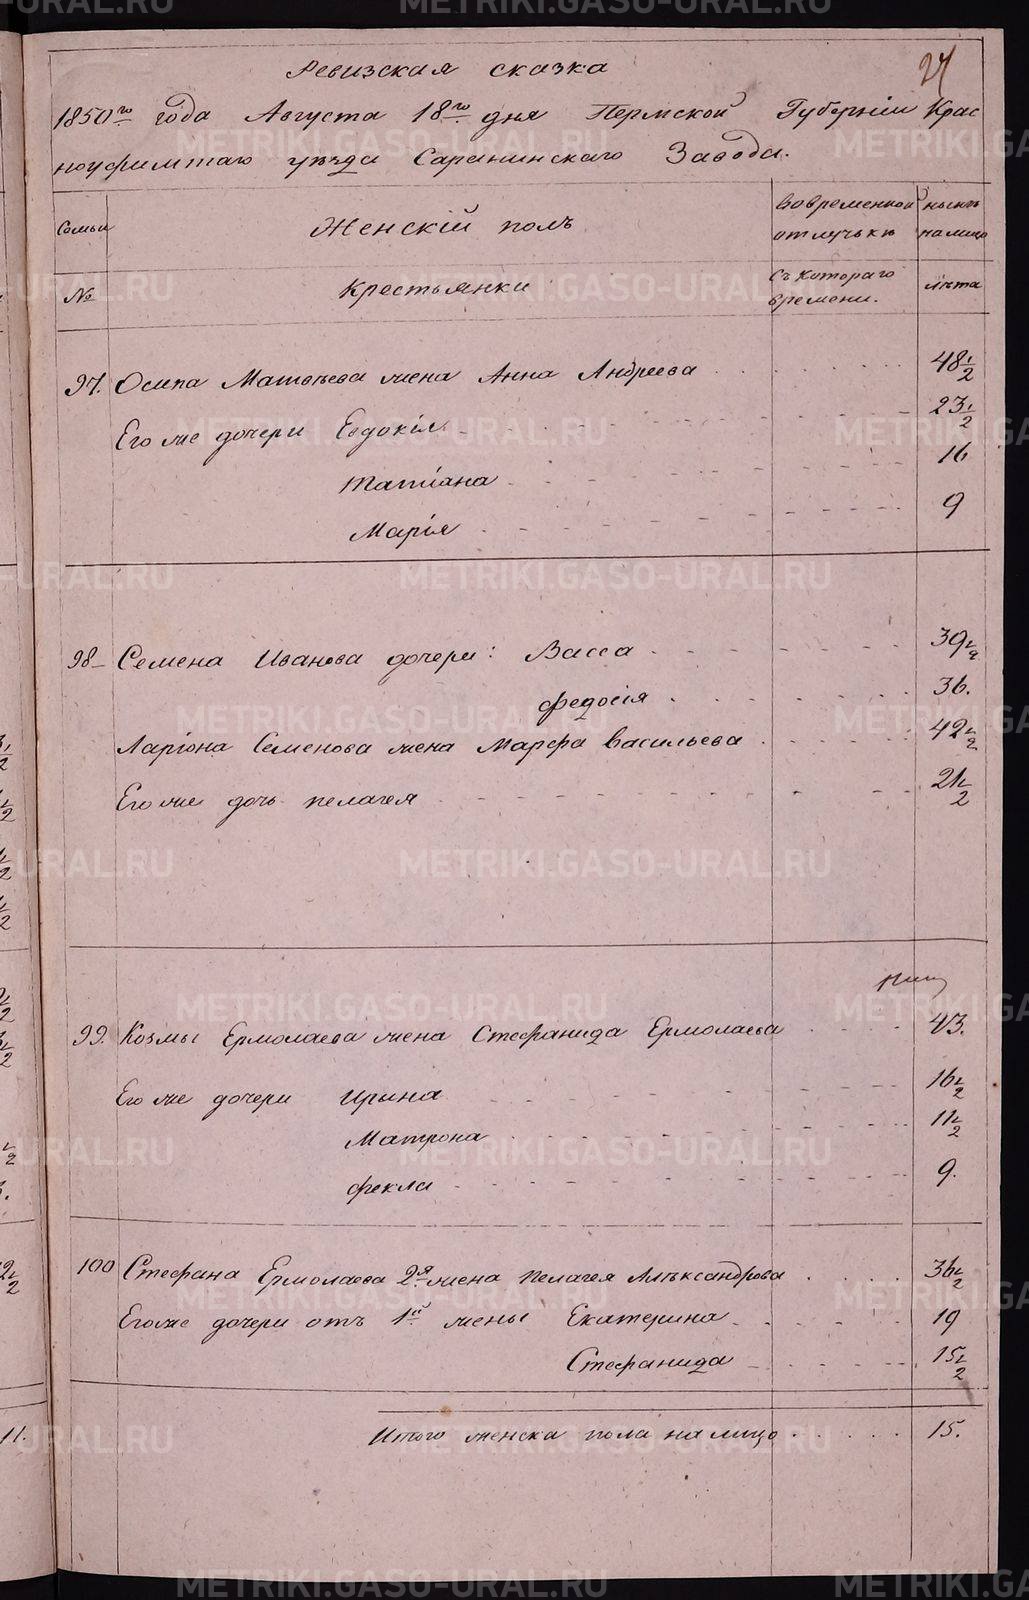 Ревизская сказка
27
1850го года Августа 18го дня Пермской Губерніи Крас
ноуфимтаго уѣзда Саранинскаго Завода.
Семьи Женскій полъ Вовременной отлучькѣ нынѣ налицо
№ Крестьянки Съ котораго времени. лѣта
97. Осипа Матвѣева жена Анна Андреева 48 1/2
Его же дочери Евдокія 23 1/2
Татіана 16
Марія 9
98 Семена Иванова дочери: Васса 39 1/2
Федосія 36.
Ларіона Семенова жена Марфа Васильева 42 1/2
Его же дочь пелагея 21 1/2
99. Козмы Ермолаева жена Стефанида Ермолаева 43.
Его же дочери Ирина 16 1/2
Матрона 11 1/2
Фекла 9.
100 Стефана Ермолаева 2я жена пелагея Алѣксандрова 36 1/2
Его же дочери отъ 1й жены Екатерина 19
Стефанида 15 1/2
Итого женска пола на лицо 15.
11.
METRIKI.GASO-URAL.RU